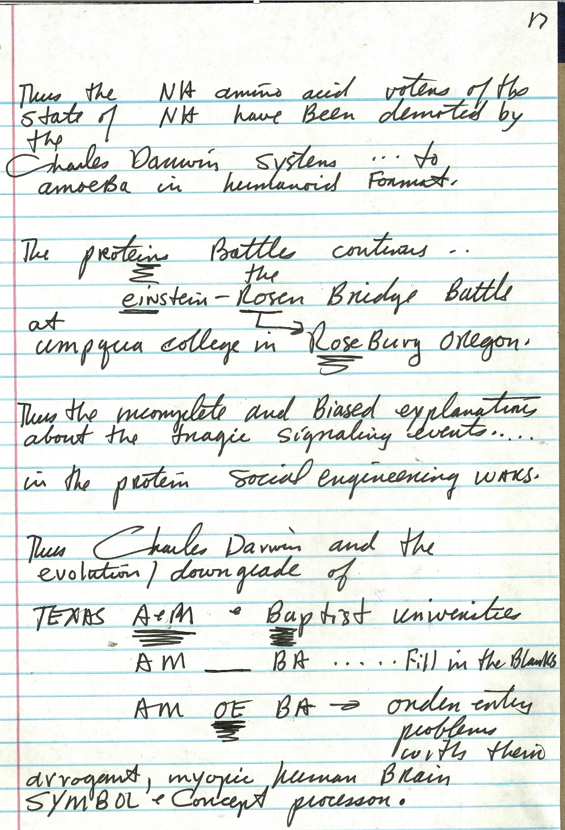 17
Thus the NH amino acid voters of the
state of NH have Been demoted by
the
Charles Darwin systems ... to
amoeBa in humanoid Format.
The proteins Battles continues ..
the
einstein - Rosen Bridge Battle
at
umpqua college in RoseBurg Oregon.
Thus the incomplete and Biased explanations
about the tragic signaling events.....
in the protein social engineering wars.
Thus Charles Darwin and the
evolution / downgrade of
TEXAS A+M + Baptist universities
AM ___ BA ...... Fill in the Blanks
AM OE BA → order entry
problems
with their
arrogant, myopic human Brain
SYMBOL + Concept processor.